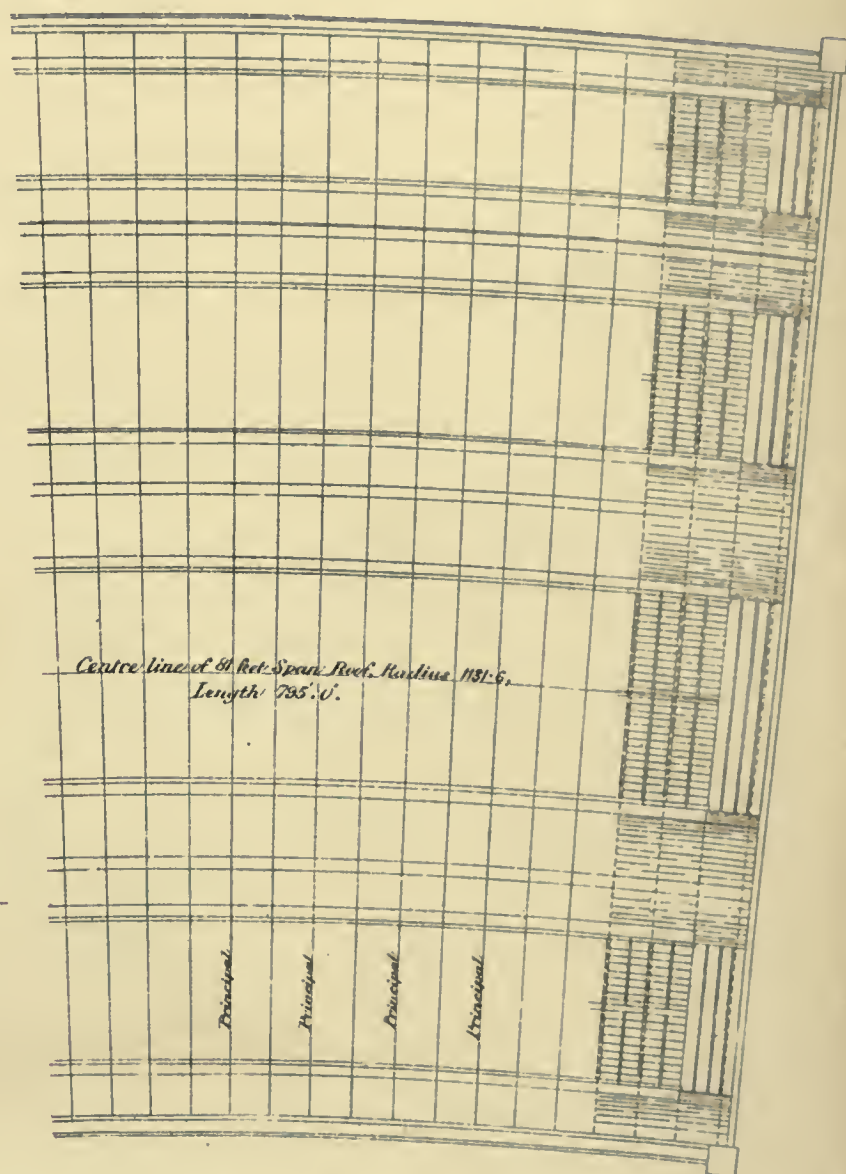 Centre line of 81 feet Span Roof. Radius 1131·6,
Length 795'.0".
Principal
Principal
Principal
Principal